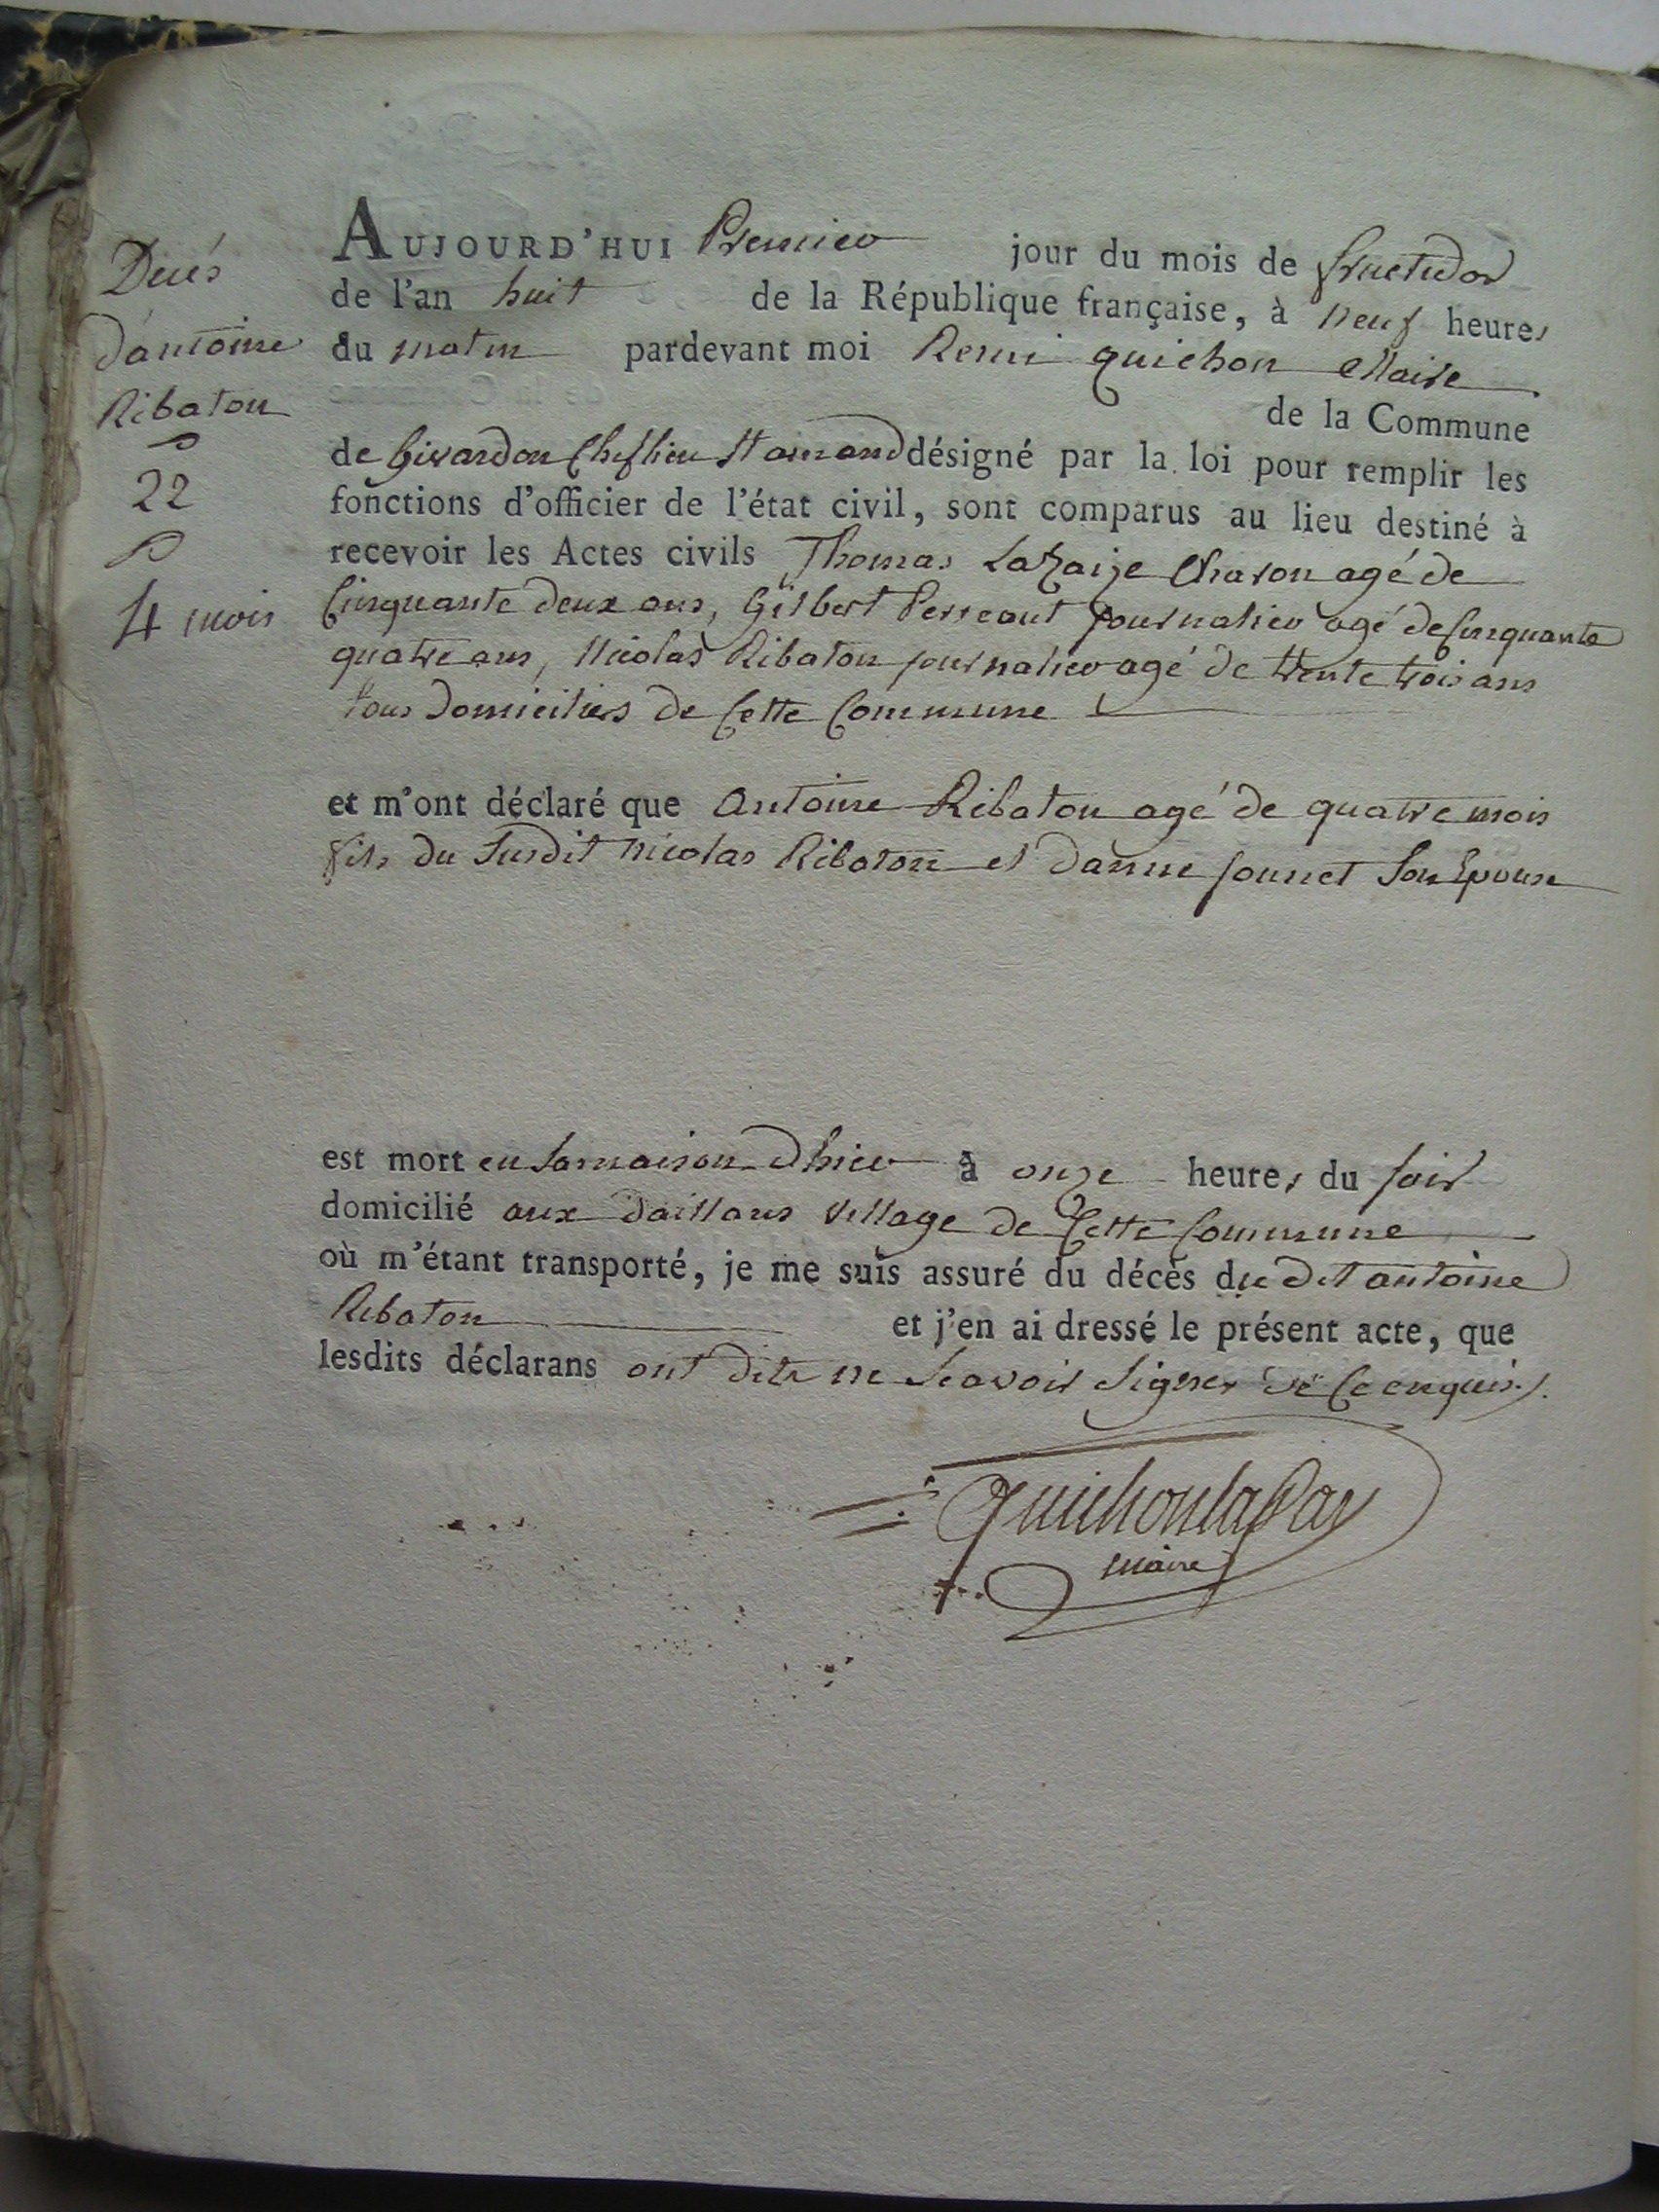 Decés
d'antoine
Ribaton
22
4 mois
AUJOURD'HUI Premier jour du mois de fructidor
de l'an huit de la République française, à neuf heures
du matin pardevant moi Remi quichon Maire
de la Commune
de Chef lieu désigné par la loi pour remplir les
fonctions d'officier de l'état civil, sont comparus au lieu destiné à
recevoir les Actes civils Thomas agé de
Cinquante deux ans, Gilbert Perreaut journalier agé de Cinquante
quatre ans, Nicolas Ribaton journalier agé de trente trois ans
tous domiciliers de Cette Commune
et m'ont déclaré que antoine Ribaton agé de quatre mois
fils du Susdit nicolas Ribaton et danne jounet Son Epouse
est mort en Sa maison d'hier à onze heures du soir
domicilié aux village de Cette Commune
où m'étant transporté, je me suis assuré du décès du dit antoine
Ribaton et j'en ai dressé le présent acte, que
lesdits déclarans ont dits ne Scavoir Signer de Ce enquis.
maire